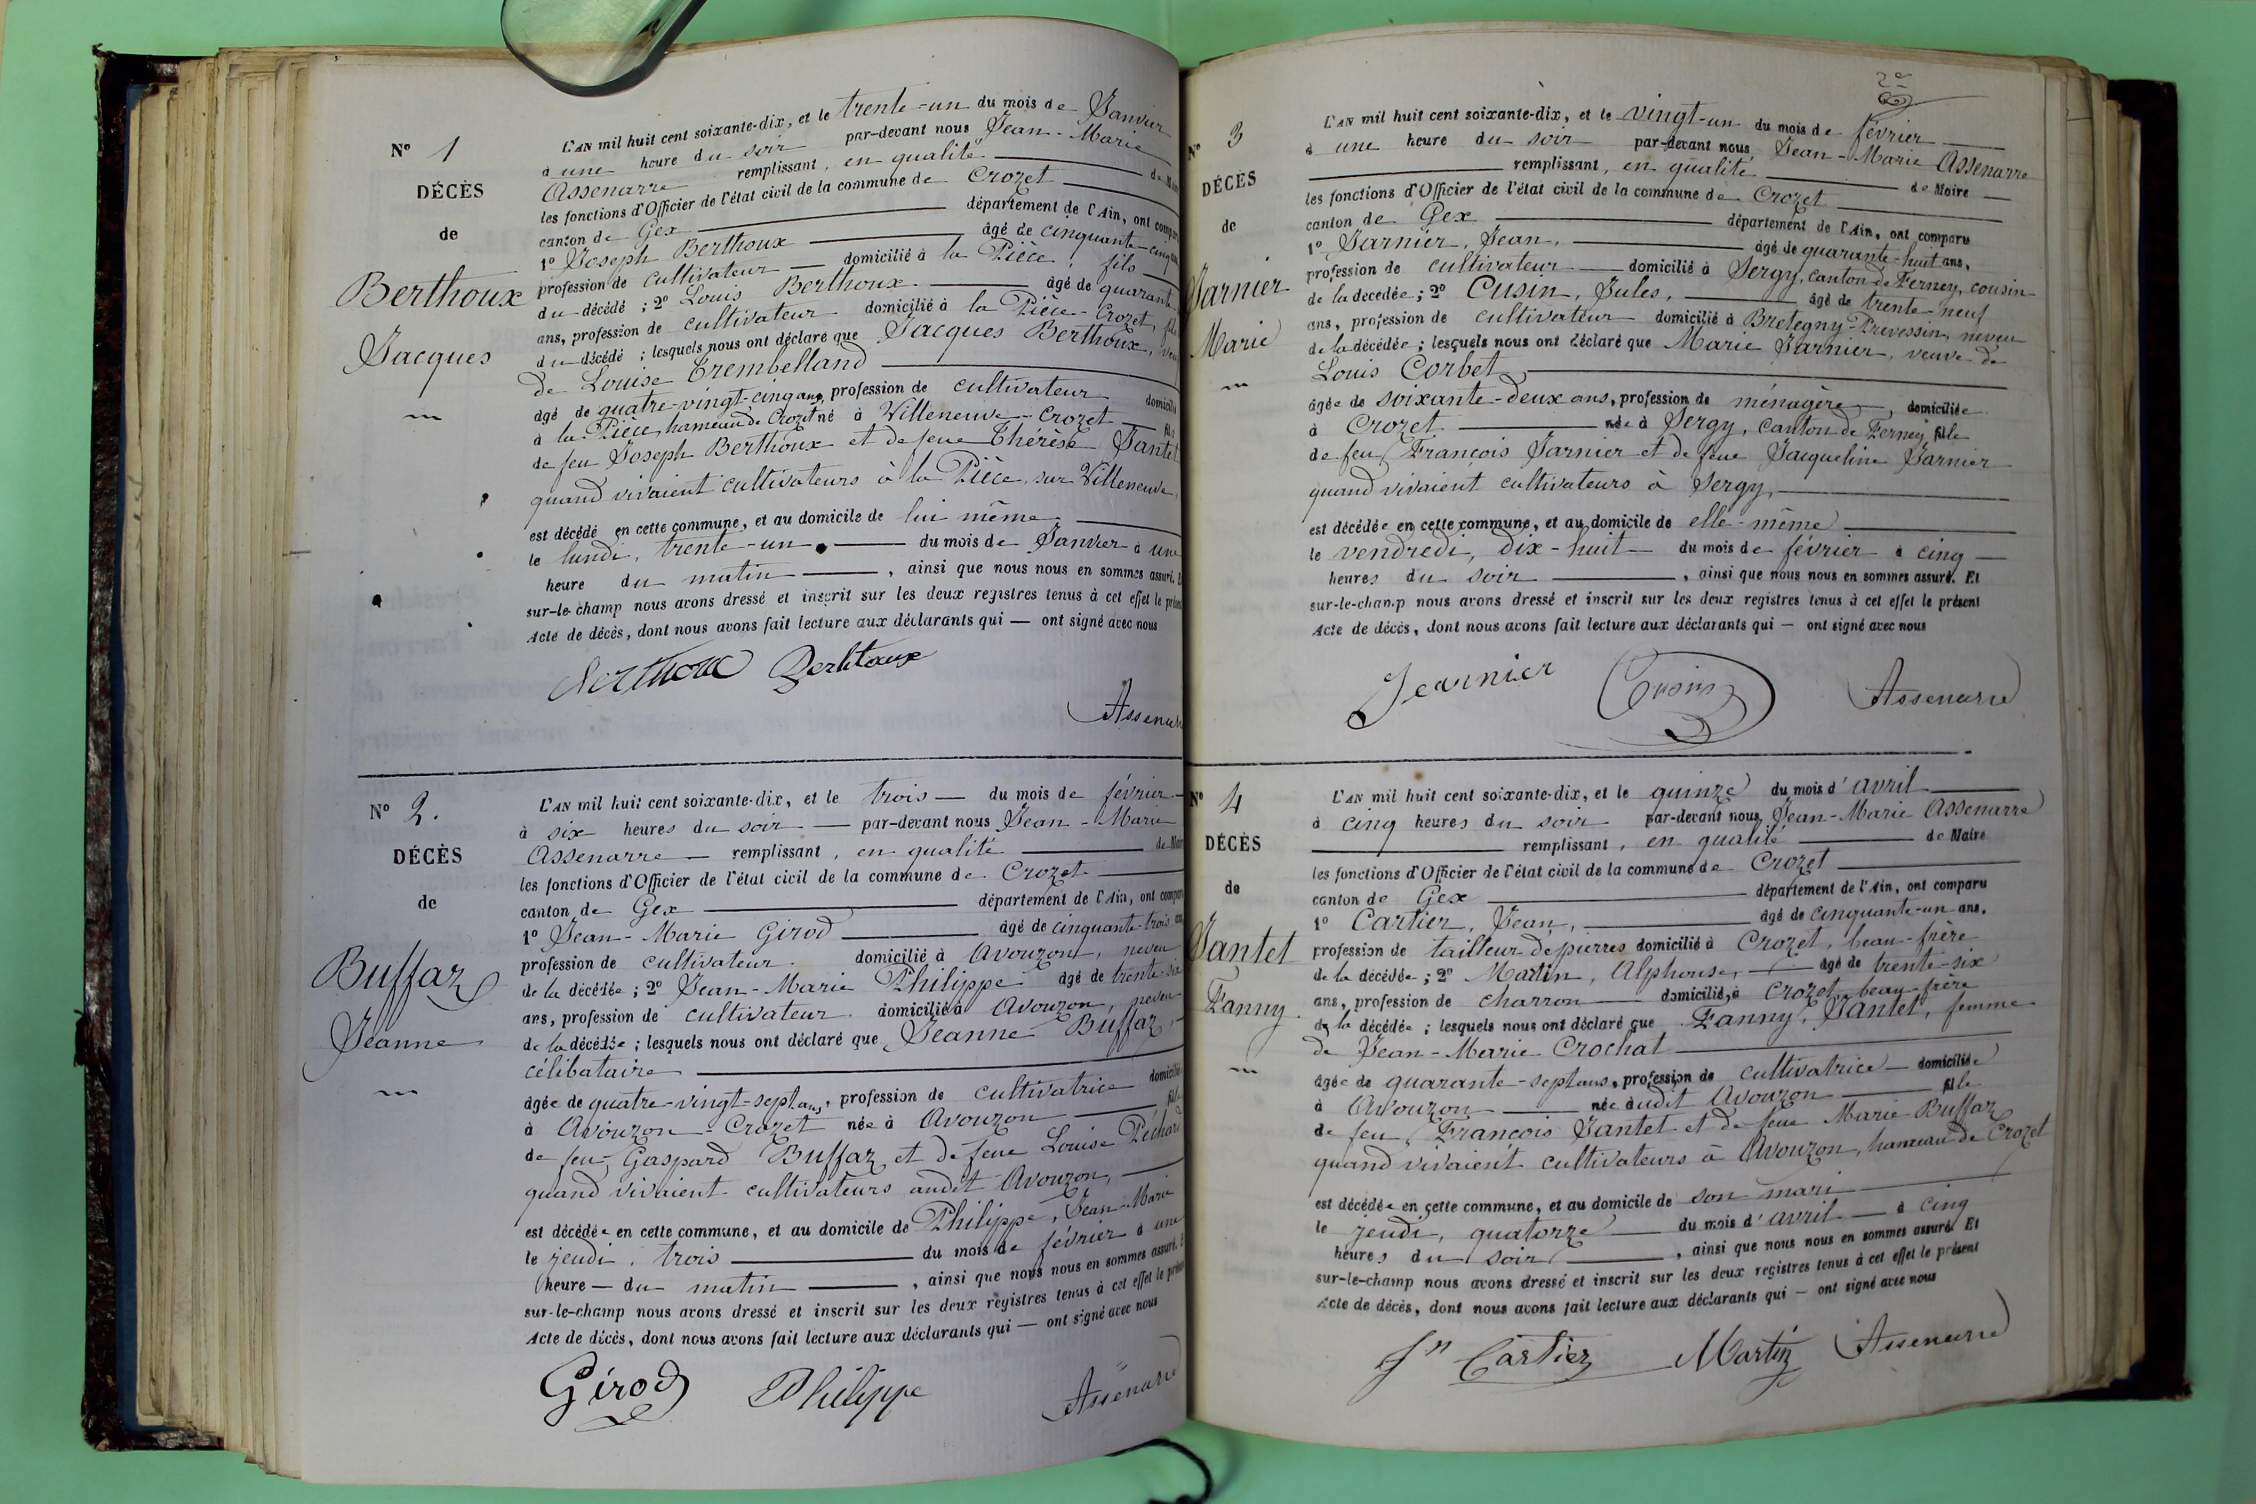 N° 1
DÉCÈS
de
Berthoux
Jacques
L'AN mil huit cent soixante-dix, et le trente-un du mois de Janvier
à une heure du soir par-devant nous Jean-Marie
Assenarre remplissant, en qualité de Maire
les fonctions d'Officier de l'état civil de la commune de Crozet
canton de Gex département de l'Ain, ont comparu
1° Joseph Berthoux âgé de cinquante-cinq ans,
profession de cultivateur domicilié à la Pièce, fils
du décédé ; 2° Louis Berthoux âgé de quarante
ans, profession de cultivateur domicilié à la Pièce-Crozet, fils
du décédé ; lesquels nous ont déclaré que Jacques Berthoux, veuf
de Louise Trembelland
âgé de quatre-vingt-cinq ans, profession de cultivateur domicilié
à la Pièce, hameau de Crozet né à Villeneuve-Crozet fils
de feu Joseph Berthoux et de feue Thérèse Jantet
quand vivaient cultivateurs à la Pièce, sur Villeneuve,
est décédé en cette commune, et au domicile de lui même
le lundi, trente-un du mois de Janvier à une
heure du matin, ainsi que nous nous en sommes assuré. Et
sur-le-champ nous avons dressé et inscrit sur les deux registres tenus à cet effet le présent
Acte de décès, dont nous avons fait lecture aux déclarants qui — ont signé avec nous
Berthoux Berthoux
Assenarre
N° 2.
DÉCÈS
de
Buffaz
Jeanne
L'AN mil huit cent soixante-dix, et le trois du mois de février
à six heures du soir par-devant nous Jean-Marie
Assenarre remplissant, en qualité de Maire
les fonctions d'Officier de l'état civil de la commune de Crozet
canton de Gex département de l'Ain, ont comparu
1° Jean-Marie Girod âgé de cinquante-trois ans,
profession de cultivateur domicilié à Avouzon, neveu
de la décédée ; 2° Jean-Marie Philippe âgé de trente-six
ans, profession de cultivateur domicilié à Avouzon, neveu
de la décédée ; lesquels nous ont déclaré que Jeanne Buffaz,
célibataire
âgée de quatre-vingt-sept ans, profession de cultivatrice domiciliée
à Avouzon-Crozet née à Avouzon fille
de feu Gaspard Buffaz et de feue Louise Péchard
quand vivaient cultivateurs audit Avouzon,
est décédée en cette commune, et au domicile de Philippe, Jean-Marie
le jeudi, trois du mois de février à une
heure — du matin, ainsi que nous nous en sommes assuré. Et
sur-le-champ nous avons dressé et inscrit sur les deux registres tenus à cet effet le présent
Acte de décès, dont nous avons fait lecture aux déclarants qui — ont signé avec nous
Girod Philippe Assenarre
2e
N° 3
DÉCÈS
de
Jarnier
Marie
L'AN mil huit cent soixante-dix, et le vingt-un du mois de février
à une heure du soir par-devant nous Jean-Marie Assenarre
remplissant, en qualité de Maire
les fonctions d'Officier de l'état civil de la commune de Crozet
canton de Gex département de l'Ain, ont comparu
1° Jarnier, Jean, âgé de quarante-huit ans,
profession de cultivateur domicilié à Sergy, canton de Ferney, cousin
de la décédée ; 2° Cusin, Jules, âgé de trente-neuf
ans, profession de cultivateur domicilié à Bretegny-Prevessin, neveu
de la décédée ; lesquels nous ont déclaré que Marie Jarnier, veuve de
Louis Corbet,
âgée de soixante-deux ans, profession de ménagère, domiciliée
à Crozet née à Sergy, canton de Ferney fille
de feu François Jarnier et de feue Jacqueline Jarnier
quand vivaient cultivateurs à Sergy,
est décédée en cette commune, et au domicile de elle-même
le vendredi, dix-huit du mois de février à cinq
heures du soir, ainsi que nous nous en sommes assuré. Et
sur-le-champ nous avons dressé et inscrit sur les deux registres tenus à cet effet le présent
Acte de décès, dont nous avons fait lecture aux déclarants qui — ont signé avec nous
Jearnier Cusin Assenarre
N° 4
DÉCÈS
de
Jantet
Fanny.
L'AN mil huit cent soixante-dix, et le quinze du mois d'avril
à cinq heures du soir par-devant nous Jean-Marie Assenarre
remplissant, en qualité de Maire
les fonctions d'Officier de l'état civil de la commune de Crozet
canton de Gex département de l'Ain, ont comparu
1° Cartier, Jean, âgé de cinquante-un ans.
profession de tailleur de pierres domicilié à Crozet, beau-frère
de la décédée ; 2° Martin, Alphonse, âgé de trente-six
ans, profession de charron domicilié à Crozet, beau-frère
de la décédée ; lesquels nous ont déclaré que Fanny, Jantet, femme
de Jean-Marie Crochat
âgée de quarante-sept ans, profession de cultivatrice domiciliée
à Avouzon née audit Avouzon fille
de feu François Jantet et de feue Marie Buffaz
quand vivaient cultivateurs à Avouzon, hameau de Crozet
est décédée en cette commune, et au domicile de son mari
le jeudi, quatorze du mois d'avril à cinq
heures du soir, ainsi que nous nous en sommes assuré. Et
sur-le-champ nous avons dressé et inscrit sur les deux registres tenus à cet effet le présent
Acte de décès, dont nous avons fait lecture aux déclarants qui — ont signé avec nous
Jn Cartier Martin Assenarre